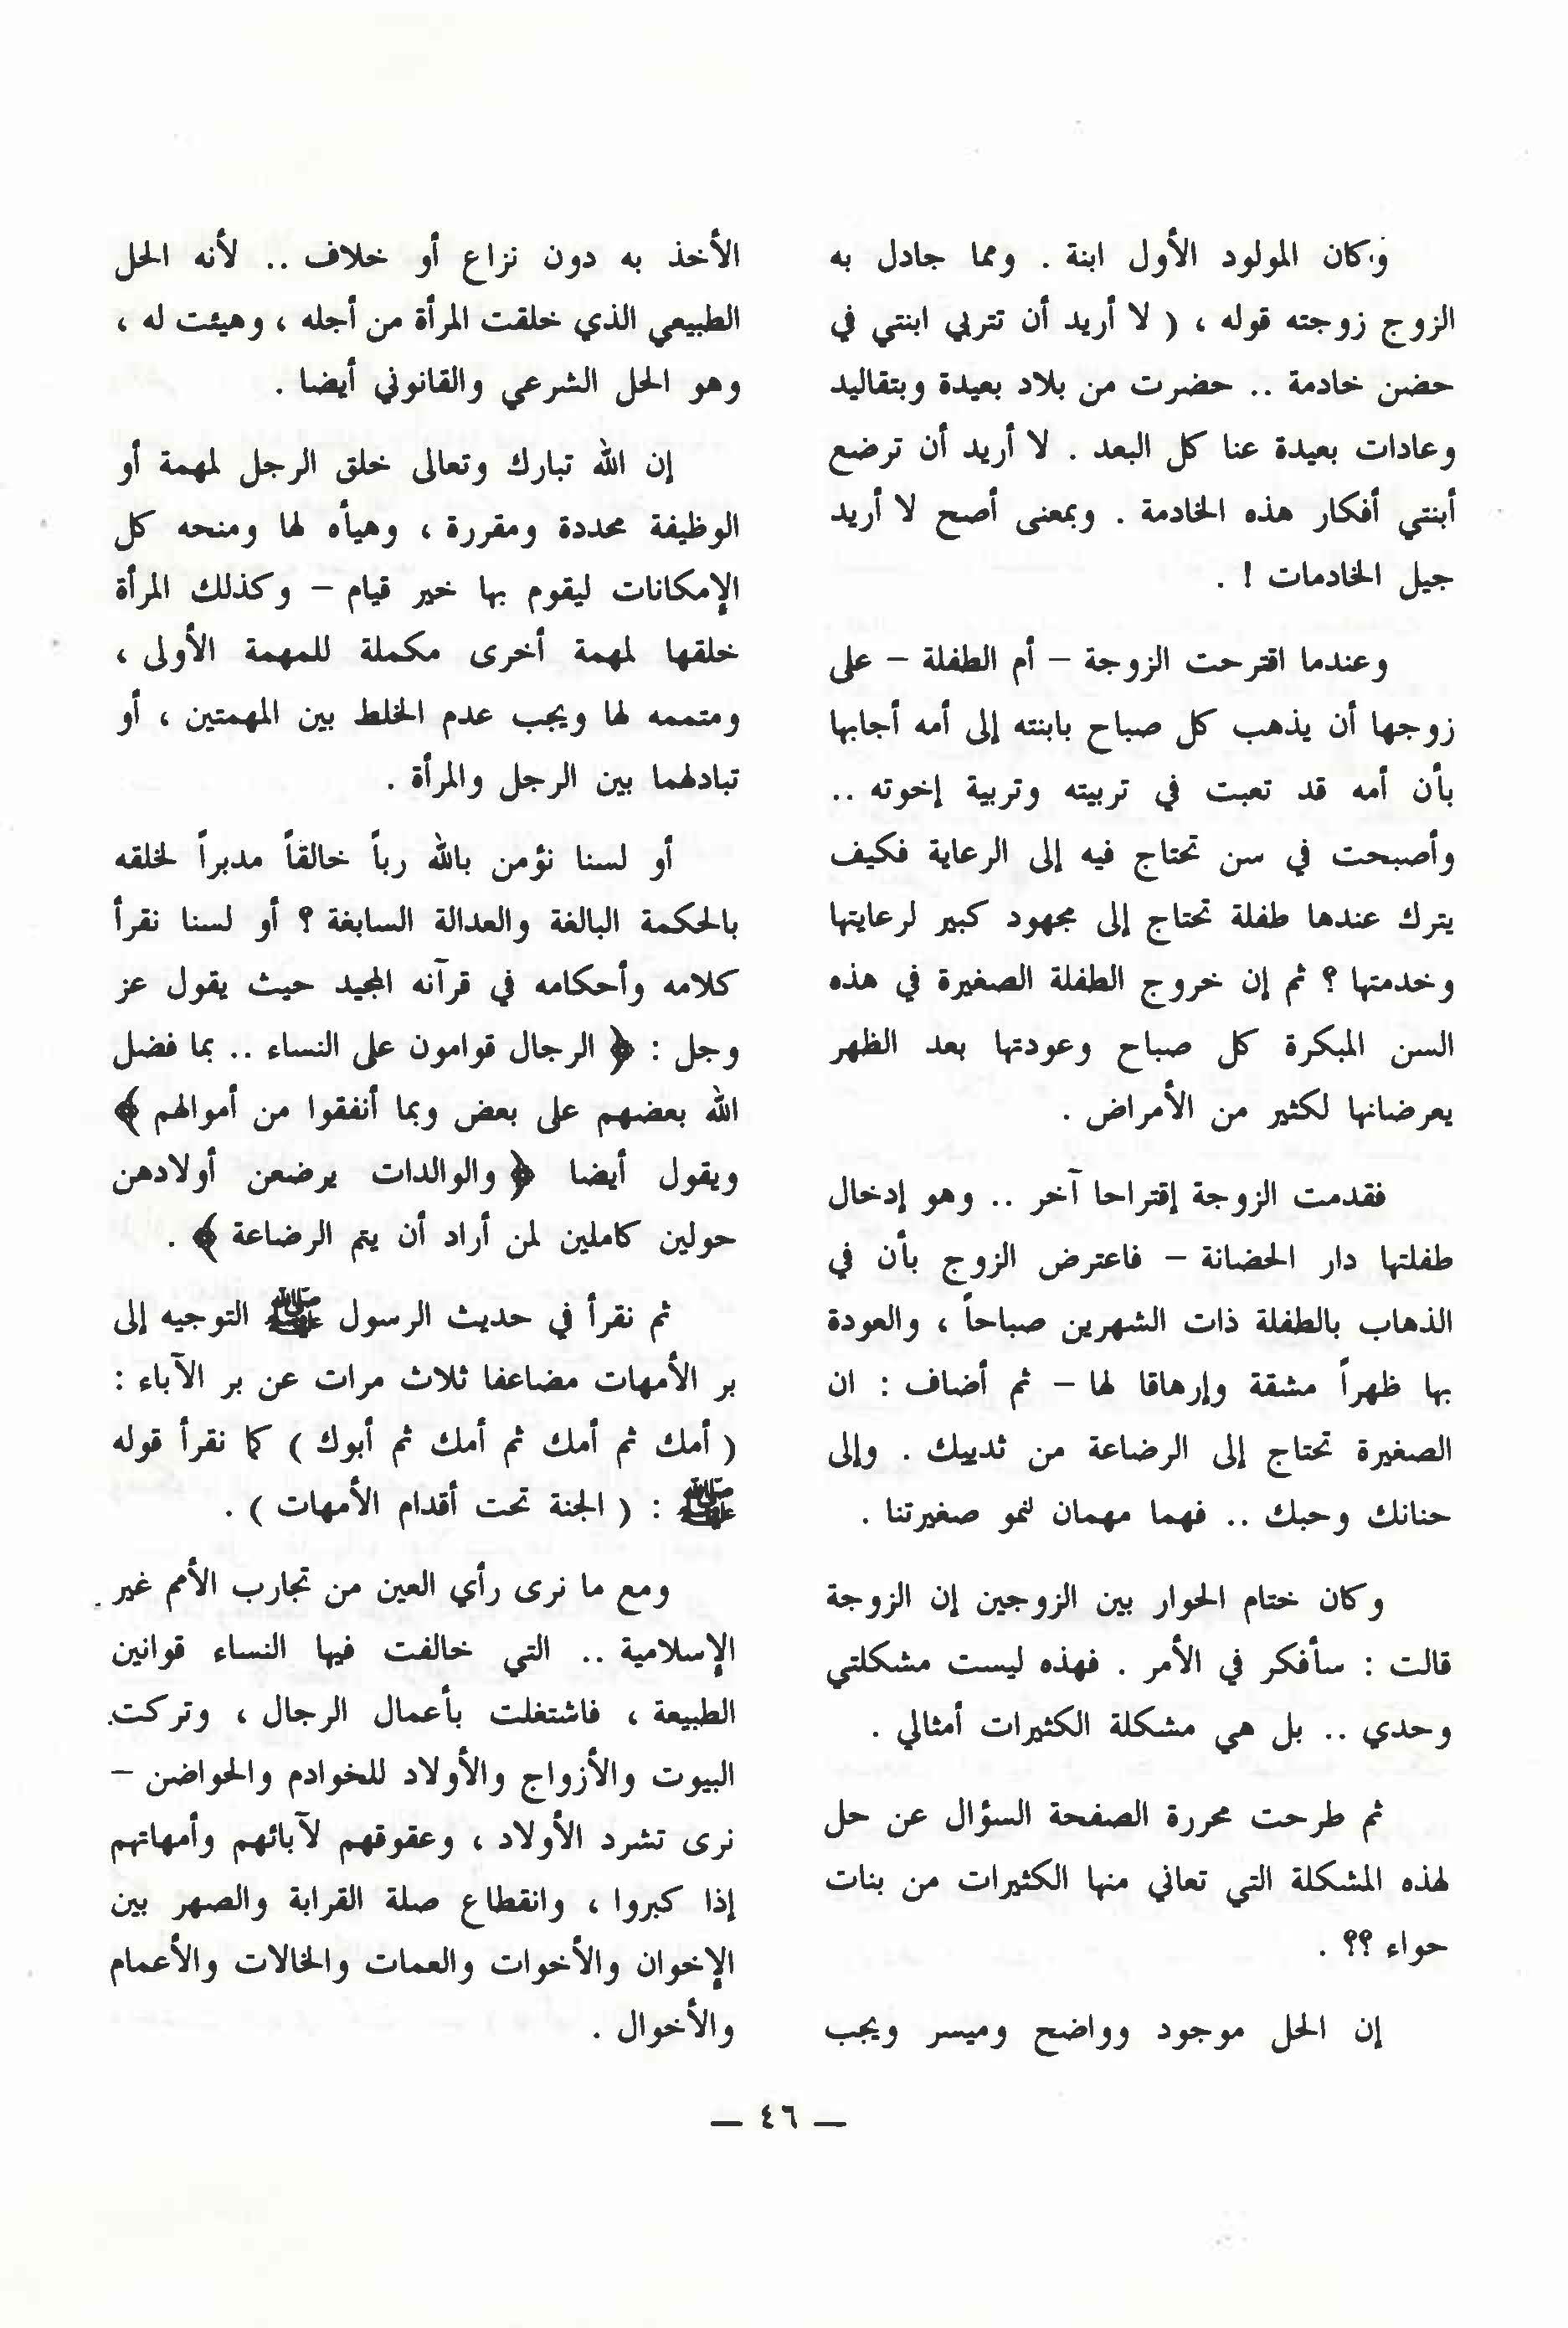 وكان المولود الأول ابنة . ومما جادل به
الزوج زوجته قوله ، ( لا أريد أن تتربي ابنتي في
حضن خادمة .. حضرت من بلاد بعيدة وبتقاليد
وعادات بعيدة عنا كل البعد . لا أريد أن ترضع
أبنتي أفكار هذه الخادمة . وبمعنى أصح لا أريد
جيل الخادمات ! .
وعندما اقترحت الزوجة – أم الطفلة – على
زوجها أن يذهب كل صباح بابنته إلى أمه أجابها
بأن أمه قد تعبت في تربيته وتربية إخوته ..
وأصبحت في سن تحتاج فيه إلى الرعاية فكيف
يترك عندها طفلة تحتاج إلى مجهود كبير لرعايتها
وخدمتها ؟ ثم إن خروج الطفلة الصغيرة في هذه
السن المبكرة كل صباح وعودتها بعد الظهر
يعرضانها لكثير من الأمراض .
فقدمت الزوجة إقتراحا آخر .. وهو إدخال
طفلتها دار الحضانة – فاعترض الزوج بأن في
الذهاب بالطفلة ذات الشهرين صباحاً ، والعودة
بها ظهراً مشقة وإرهاقا لها – ثم أضاف : ان
الصغيرة تحتاج إلى الرضاعة من ثدييك . وإلى
حنانك وحبك .. فهما مهمان لنمو صغيرتنا .
وكان ختام الحوار بين الزوجين إن الزوجة
قالت : سأفكر في الأمر . فهذه ليست مشكلتي
وحدي .. بل هي مشكلة الكثيرات أمثالي .
ثم طرحت محررة الصفحة السؤال عن حل
لهذه المشكلة التي تعاني منها الكثيرات من بنات
حواء ؟؟ .
إن الحل موجود وواضح وميسر ويجب
الأخذ به دون نزاع أو خلاف .. لأنه الحل
الطبيعي الذي خلقت المرأة من أجله ، وهيئت له ،
وهو الحل الشرعي والقانوني أيضا .
إن الله تبارك وتعالى خلق الرجل لمهمة أو
الوظيفة محددة ومقررة ، وهيأه لها ومنحه كل
الإمكانات ليقوم بها خير قيام – وكذلك المرأة
خلقها لمهمة أخرى مكملة للمهمة الأولى ،
ومتممه لها ويجب عدم الخلط بين المهمتين ، أو
تبادلهما بين الرجل والمرأة .
أو لسنا نؤمن بالله رباً خالقاً مدبراً لخلقه
بالحكمة البالغة والعدالة السابغة ؟ أو لسنا نقرأ
كلامه وأحكامه في قرآنه المجيد حيث يقول عز
وجل : ﴿ الرجال قوامون على النساء .. بما فضل
الله بعضهم على بعض وبما أنفقوا من أموالهم ﴾
ويقول أيضا ﴿ والوالدات يرضعن أولادهن
حولين كاملين لمن أراد أن يتم الرضاعة ﴾ .
ثم نقرأ في حديث الرسول ﷺ التوجيه إلى
بر الأمهات مضاعفا ثلاث مرات عن بر الآباء :
( أمك ثم أمك ثم أمك ثم أبوك ) كما نقرأ قوله
ﷺ : ( الجنة تحت أقدام الأمهات ) .
ومع ما نرى رأي العين من تجارب الأمم غير
الإسلامية .. التي خالفت فيها النساء قوانين
الطبيعة ، فاشتغلت بأعمال الرجال ، وتركت
البيوت والأزواج والأولاد للخوادم والحواضن –
نرى تشرد الأولاد ، وعقوقهم لآبائهم وأمهاتهم
إذا كبروا ، وانقطاع صلة القرابة والصهر بين
الإخوان والأخوات والعمات والخالات والأعمام
والأخوال .
— ٤٦ —